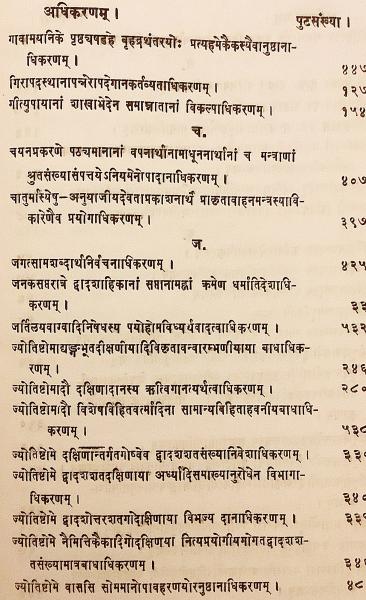 अधिकरणम् । पुटसंख्या ।
गावामयनिके पृष्ठ्यषडहे बृहद्रथंतरयोः प्रत्यहमेकैकस्यैवानुष्ठाना-
धिकरणम् । ४४७
गिरापदस्थानापन्नेरापदेगानकर्तव्यताधिकरणम् । १२७
गीत्युपायानां शाखाभेदेन समाम्नातानां विकल्पाधिकरणम् । १५४
च.
चयनप्रकरणे पठ्यमानानां वपनार्थानामाधूननार्थानां च मन्त्राणां
श्रुतसंख्यासंपत्तये ऽनियमेनोपादानाधिकरणम् । ४०७
चातुर्मास्येषु-अनुयाजीयदेवताप्रकाशनार्थं प्राकृतावाहनमन्त्रस्यावि-
कारेणैव प्रयोगाधिकरणम् । ३९७
ज.
जगत्सामशब्दार्थनिर्वचनाधिकरणम् । ४२५
जनकसप्तरात्रे द्वादशाहिकानां सप्तानामह्नां क्रमेण धर्मातिदेशाधि-
करणम् । ३३
जर्तिलयवाग्वादिनिषेधस्य पयोहोमविध्यर्थवादत्वाधिकरणम् । ५३२
ज्योतिष्टोमाद्यङ्गभूतदीक्षणीयादिविकृतावन्वारम्भणीयाया बाधाधिक-
रणम् । २४६
ज्योतिष्टोमादौ दक्षिणादानस्य ऋत्विगानत्यर्थत्वाधिकरणम् । २८०
ज्योतिष्टोमादौ विशेषविहितवर्त्मादिना सामान्यविहिताहवनीयबाधाधि-
करणम् । ५३८
ज्योतिष्टोमे दक्षिणान्तर्गतगोष्वेव द्वादशशतसंख्यानिवेशाधिकरणम् । ३३०
ज्योतिष्टोमे द्वादशशतदक्षिणाया अर्ध्यादिसमाख्यानुरोधेन विभागा-
धिकरणम् । ३४०
ज्योतिष्टोमे द्वादशोत्तरशतगोदक्षिणाया विभज्य दानाधिकरणम् ।
ज्योतिष्टोमे नैमित्तिकैकादिगोदक्षिणाया नित्यप्रयोगीयमोगतद्वादशश-
तसंख्यामात्रबाधाधिकरणम् ।
ज्योतिष्टोमे वाससि सोममानोपावहरणयोरनुष्ठानाधिकरणम् । ४८